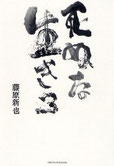 死ぬな
生きろ
藤原新也